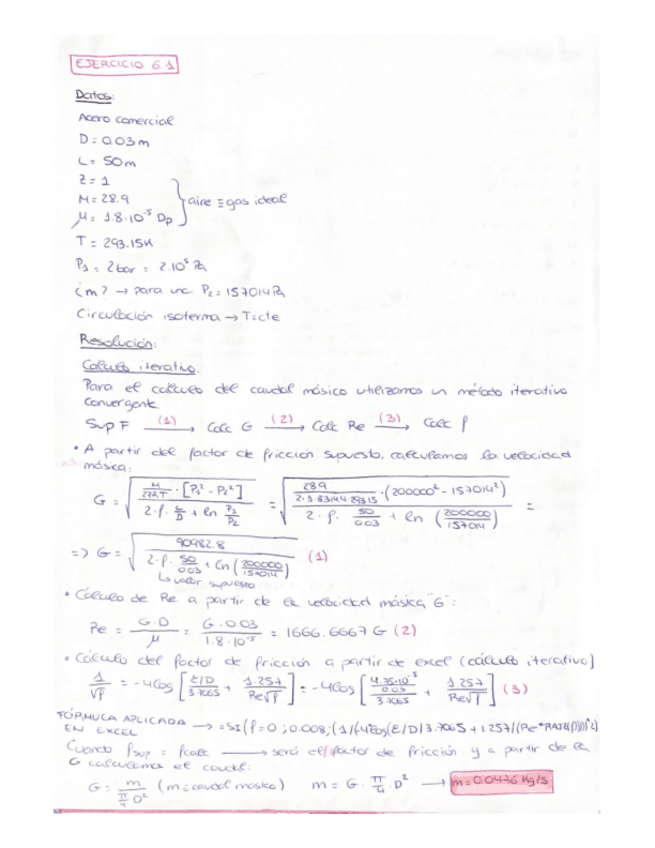 EJERCICIO 6.1
Datos:
Acero comercial
D = 0.03 m
L = 50 m
Z = 1
M = 28.9
μ = 1.8·10⁻⁵ Dp
} aire ≡ gas ideal
T = 293.15 K
P₁ = 2 bar = 2·10⁵ Pa
¿m? → para una P₂ = 157014 Pa
Circulación isoterma → T = cte
Resolución:
Cálculo iterativo.
Para el cálculo del caudal másico utilizamos un método iterativo
convergente
Sup F —(1)→ Calc G —(2)→ Calc Re —(3)→ Calc f
• A partir del factor de fricción supuesto, calculamos la velocidad
másica:
G = √( (M/2ZRT · [P₁² - P₂²]) / (2·f· L/D + ln P₁/P₂) ) = √( (28.9/2·1·8314.4·293.15 · (200000² - 157014²)) / (2·f· 50/0.03 + ln (200000/157014)) ) =
=> G = √( 90982.8 / (2·f· 50/0.03 + ln (200000/157014)) ) (1)
↳ valor supuesto
• Cálculo de Re a partir de la velocidad másica "G":
Re = G·D/μ = G·0.03/1.8·10⁻⁵ = 1666.6667 G (2)
• Cálculo del factor de fricción a partir de excel (cálculo iterativo)
1/√f = -4log [ (ε/D)/3.7065 + 1.257/Re√f ] = -4log [ (4.75·10⁻⁵/0.03)/3.7065 + 1.257/Re√f ] (3)
FÓRMULA APLICADA → =SI(f=0;0.008;(1/(-4*log(E/D/3.7065+1.257/(Re*RAIZ(f)))))^2)
EN EXCEL
Cuando fsup = fcalc → será el factor de fricción y a partir de la
G calculamos el caudal:
G = m / (π/4 D²) (m = caudal másico) m = G · π/4 · D² → m = 0.0476 Kg/s